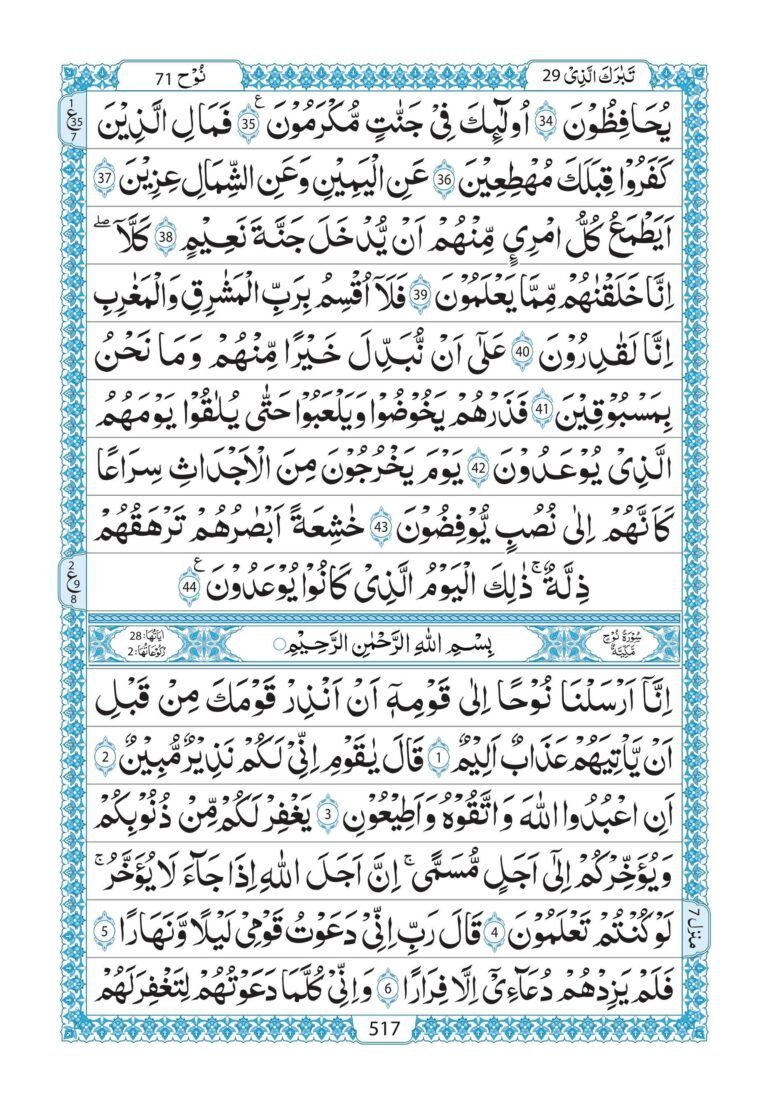 تَبٰرَكَ الَّذِیْ 29
نُوْح 71
یُحَافِظُوْنَ 34 اُولٰٓئِكَ فِیْ جَنّٰتٍ مُّكْرَمُوْنَ ع 35 فَمَالِ الَّذِیْنَ
1 ع 35 7
كَفَرُوْا قِبَلَكَ مُهْطِعِیْنَ 36 عَنِ الْیَمِیْنِ وَعَنِ الشِّمَالِ عِزِیْنَ 37
اَیَطْمَعُ كُلُّ امْرِئٍ مِّنْهُمْ اَنْ یُّدْخَلَ جَنَّةَ نَعِیْمٍ 38 كَلَّا ؕ
اِنَّا خَلَقْنٰهُمْ مِّمَّا یَعْلَمُوْنَ 39 فَلَاۤ اُقْسِمُ بِرَبِّ الْمَشٰرِقِ وَالْمَغٰرِبِ
اِنَّا لَقٰدِرُوْنَ 40 عَلٰۤی اَنْ نُّبَدِّلَ خَیْرًا مِّنْهُمْ وَمَا نَحْنُ
بِمَسْبُوْقِیْنَ 41 فَذَرْهُمْ یَخُوْضُوْا وَیَلْعَبُوْا حَتّٰی یُلٰقُوْا یَوْمَهُمُ
الَّذِیْ یُوْعَدُوْنَ 42 یَوْمَ یَخْرُجُوْنَ مِنَ الْاَجْدَاثِ سِرَاعًا
كَاَنَّهُمْ اِلٰی نُصُبٍ یُّوْفِضُوْنَ 43 خَاشِعَةً اَبْصَارُهُمْ تَرْهَقُهُمْ
ذِلَّةٌ ؕ ذٰلِكَ الْیَوْمُ الَّذِیْ كَانُوْا یُوْعَدُوْنَ ع 44
2 ع 9 8
سُوْرَةُ نُوْحٍ مَّكِّیَّةٌ
بِسْمِ اللّٰهِ الرَّحْمٰنِ الرَّحِیْمِ
اٰیَاتُهَا: 28 رُكُوْعَاتُهَا: 2
اِنَّاۤ اَرْسَلْنَا نُوْحًا اِلٰی قَوْمِهٖۤ اَنْ اَنْذِرْ قَوْمَكَ مِنْ قَبْلِ
اَنْ یَّاْتِیَهُمْ عَذَابٌ اَلِیْمٌ 1 قَالَ یٰقَوْمِ اِنِّیْ لَكُمْ نَذِیْرٌ مُّبِیْنٌ 2
اَنِ اعْبُدُوا اللّٰهَ وَاتَّقُوْهُ وَاَطِیْعُوْنِ 3 یَغْفِرْ لَكُمْ مِّنْ ذُنُوْبِكُمْ
وَیُؤَخِّرْكُمْ اِلٰۤی اَجَلٍ مُّسَمًّی ؕ اِنَّ اَجَلَ اللّٰهِ اِذَا جَآءَ لَا یُؤَخَّرُ ۘ
لَوْ كُنْتُمْ تَعْلَمُوْنَ 4 قَالَ رَبِّ اِنِّیْ دَعَوْتُ قَوْمِیْ لَیْلًا وَّنَهَارًا 5
منزل 7
فَلَمْ یَزِدْهُمْ دُعَآءِیْۤ اِلَّا فِرَارًا 6 وَاِنِّیْ كُلَّمَا دَعَوْتُهُمْ لِتَغْفِرَ لَهُمْ
517